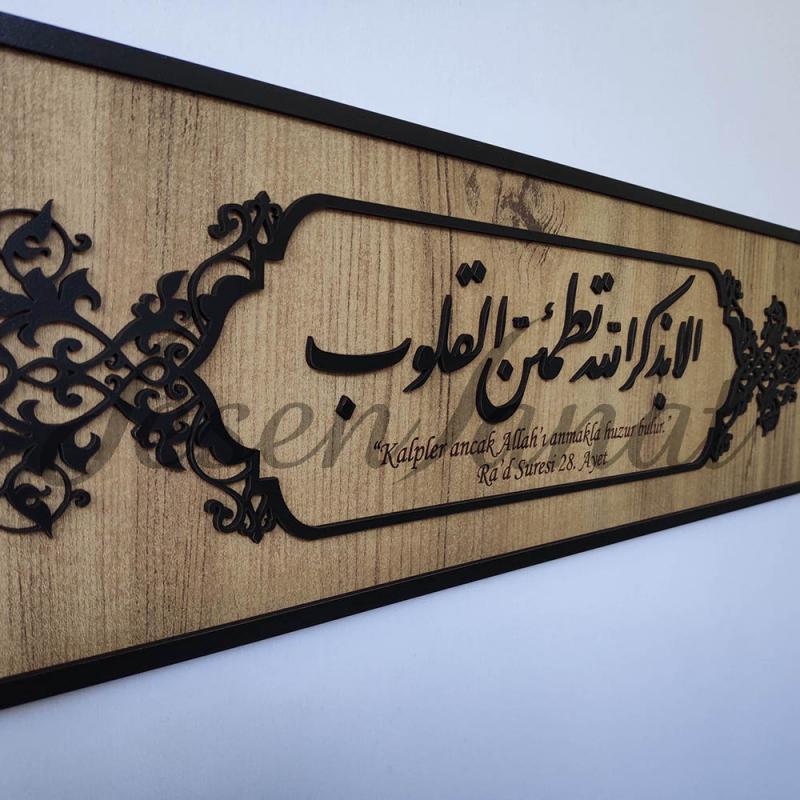 الا بذكر الله تطمئن القلوب
“Kalpler ancak Allah’ı anmakla huzur bulur.”
Ra’d Suresi 28. Ayet